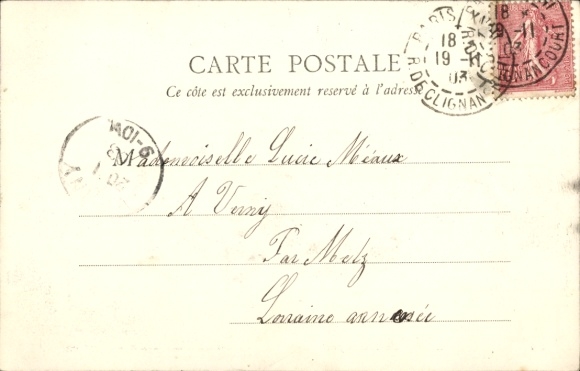 CARTE POSTALE
Ce côte est exclusivement reservé à l'adresse
PARIS
18
19 -11
03
R. DE CLIGNANCOURT
18
19 -11
03
Mademoiselle Lucie Méaux
A Verny
Par Metz
Lorraine annexée